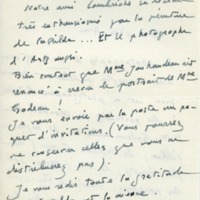 Notre ami Lambrichs se
très enthousiasmé par la peinture
de Clotilde... Et le photographe
d'Arts aussi.
Bien content que Mme Jouhandeau ait
renoncé à ce portrait de Mme
Godeau!
Je vous envoie par la poste un pa-
quet d'invitations. (Vous pourrez
me renvoyer celles que vous ne
distribuerez pas).
Je vous redis toute la gratitude